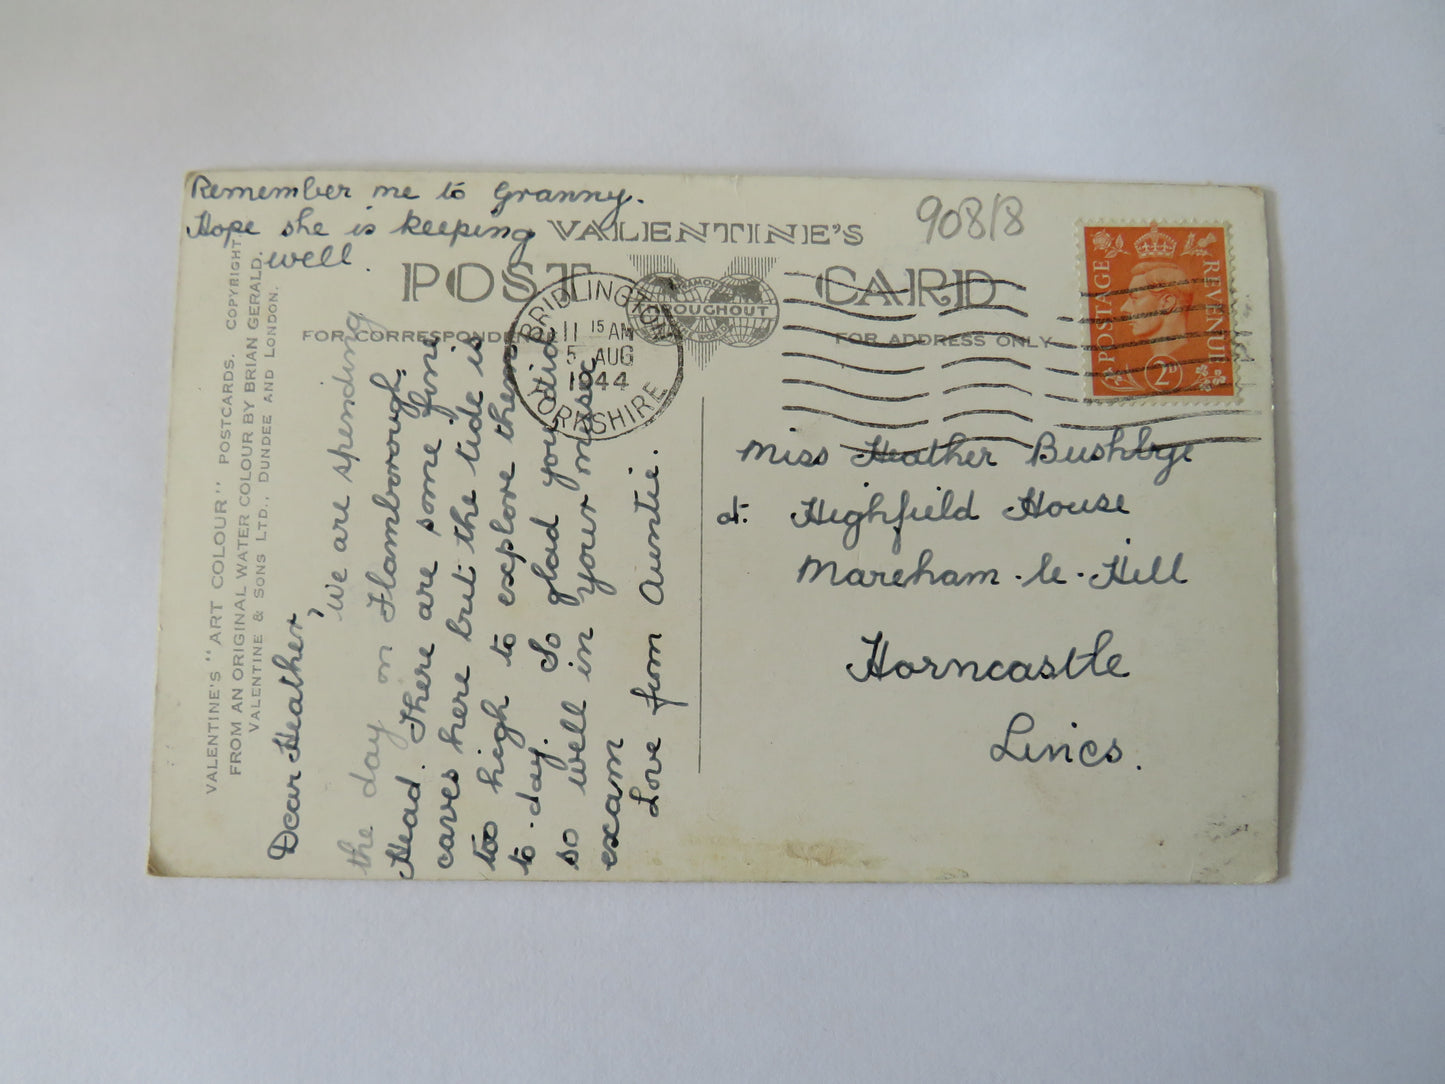 Remember me to Granny.
Hope she is keeping
well.
VALENTINE'S
908/8
POST CARD
FOR CORRESPONDENCE
FOR ADDRESS ONLY
THROUGHOUT
BRIDLINGTON
11 15 AM
5 AUG
1944
YORKSHIRE
POSTAGE
REVENUE
2D
VALENTINE'S "ART COLOUR" POSTCARDS. COPYRIGHT
FROM AN ORIGINAL WATER COLOUR BY BRIAN GERALD.
VALENTINE & SONS LTD., DUNDEE AND LONDON.
Dear Heather,
We are spending
the day on Flamborough
Head. There are some fine
caves here but the tide is
too high to explore them
to-day. So glad you did
so well in your music
exam
Love from Auntie.
Miss Heather Bushbye
at. Highfield House
Mareham-le-Hill
Horncastle
Lincs.